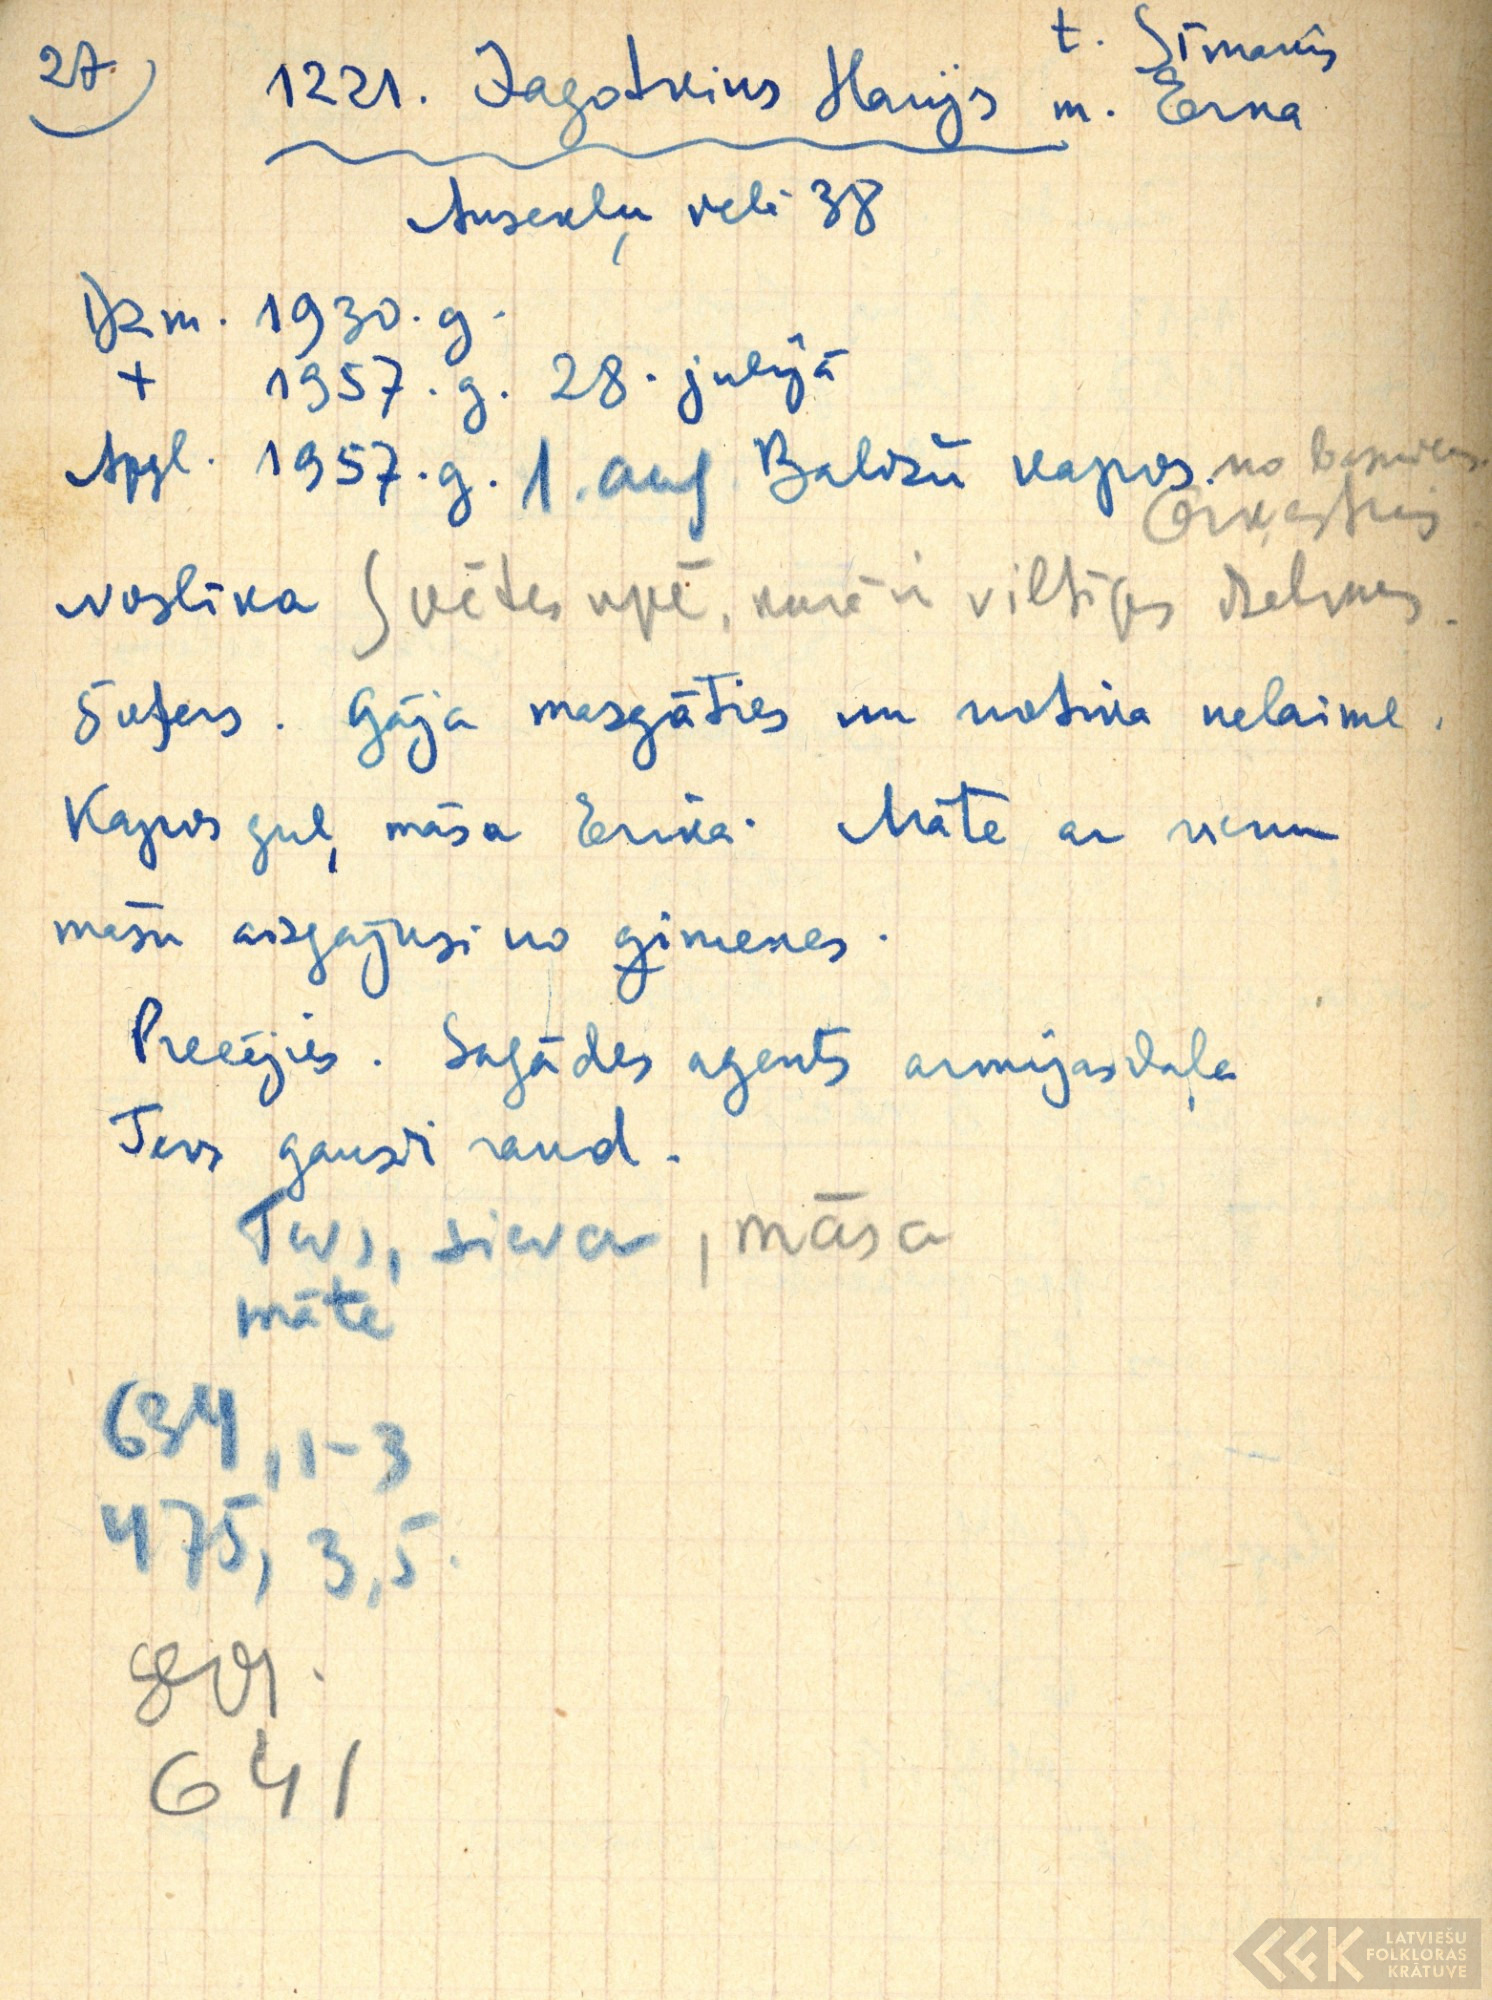 27.
t. Sīmanis
1221. Jagotkins Harijs m. Erna
Ausekļu ielā 38
Dzm. 1930. g.
+ 1957. g. 28. jūlijā
Apgl. 1957. g. 1. aug. Baložu kapos. no baznīcas.
Orķestris
noslīka Svētes upē, kurā ir viltīgas dzelmes.
šofers. Gāja mazgāties un notika nelaime.
Kapos guļ māsa Erika. Māte ar vienu
māsu aizgājusi no ģimenes.
Precējies. Sagādes agents armijas daļā
Tēvs gauži raud.
Tēvs, sieva, māsa
māte
634, 1-3
475, 3, 5.
641
LATVIEŠU
FOLKLORAS
KRĀTUVE